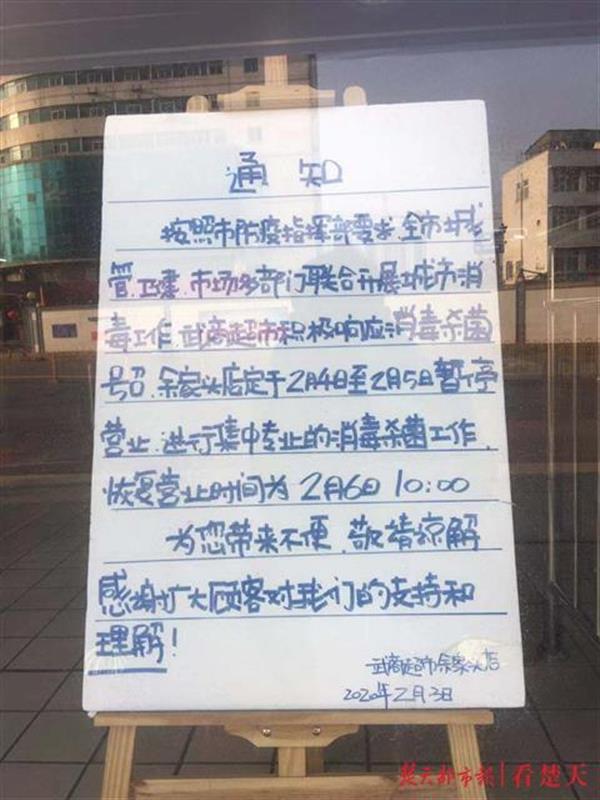 通知
按照市防疫指挥部要求,全市城
管.卫建.市场多部门联合开展城市消
毒工作.武商超市积极响应消毒杀菌
号召.余家头店定于2月4日至2月5日暂停
营业.进行集中专业的消毒杀菌工作.
恢复营业时间为2月6日10:00
为您带来不便.敬请谅解
感谢广大顾客对我们的支持和
理解!
武商超市余家头店
2020年2月3日
楚天都市报|看楚天